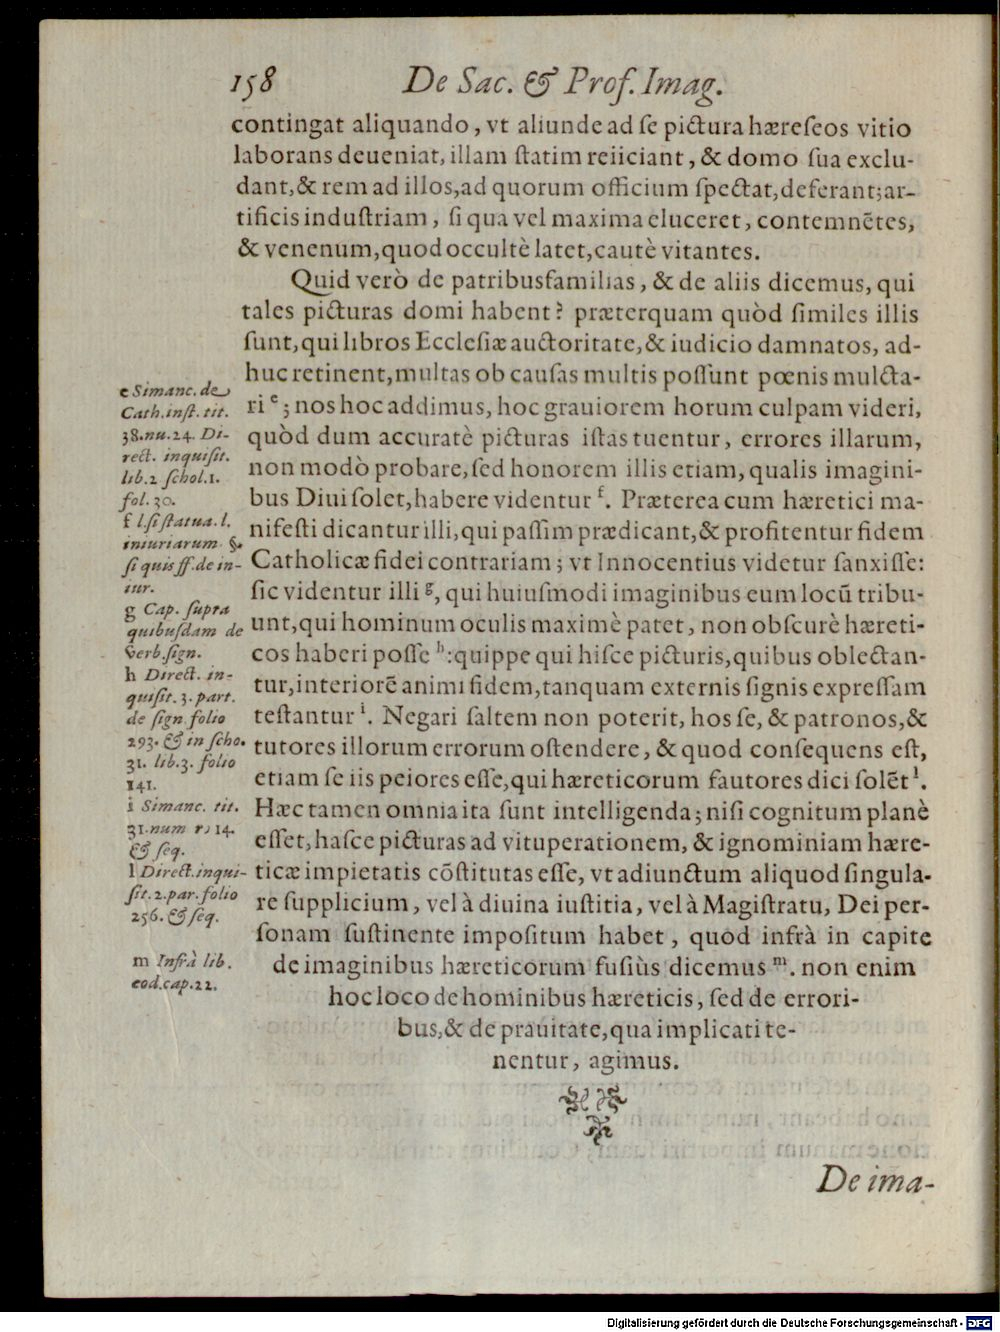 158 De Sac. & Prof. Imag.
contingat aliquando, vt aliunde ad se pictura hæreseos vitio
laborans deueniat, illam statim reiiciant, & domo sua exclu-
dant, & rem ad illos, ad quorum officium spectat, deferant; ar-
tificis industriam, si qua vel maxima eluceret, contemnẽtes,
& venenum, quod occultè latet, cautè vitantes.
Quid verò de patribusfamilias, & de aliis dicemus, qui
tales picturas domi habent? præterquam quòd similes illis
sunt, qui libros Ecclesiæ auctoritate, & iudicio damnatos, ad-
huc retinent, multas ob causas multis possunt pœnis mulcta-
ri e; nos hoc addimus, hoc grauiorem horum culpam videri,
quòd dum accuratè picturas istas tuentur, errores illarum,
non modò probare, sed honorem illis etiam, qualis imagini-
bus Diui solet, habere videntur f. Præterea cum hæretici ma-
nifesti dicantur illi, qui passim prædicant, & profitentur fidem
Catholicæ fidei contrariam; vt Innocentius videtur sanxisse:
sic videntur illi g, qui huiusmodi imaginibus eum locũ tribu-
unt, qui hominum oculis maximè patet, non obscurè hæreti-
cos haberi posse h: quippe qui hisce picturis, quibus oblectan-
tur, interiorẽ animi fidem, tanquam externis signis expressam
testantur i. Negari saltem non poterit, hos se, & patronos, &
tutores illorum errorum ostendere, & quod consequens est,
etiam se iis peiores esse, qui hæreticorum fautores dici solẽt l.
Hæc tamen omnia ita sunt intelligenda; nisi cognitum planè
esset, hasce picturas ad vituperationem, & ignominiam hære-
ticæ impietatis cõstitutas esse, vt adiunctum aliquod singula-
re supplicium, vel à diuina iustitia, vel à Magistratu, Dei per-
sonam sustinente impositum habet, quod infrà in capite
de imaginibus hæreticorum fusiùs dicemus m. non enim
hoc loco de hominibus hæreticis, sed de errori-
bus, & de prauitate, qua implicati te-
nentur, agimus.
e Simanc. de
Cath. inst. tit.
38. nu. 24. Di-
rect. inquisit.
lib. 2 schol. 1.
fol. 30.
f l. si statua. l.
iniuriarum §.
si quis ff. de in-
iur.
g Cap. supra
quibusdam de
verb. sign.
h Direct. in-
quisit. 3. part.
de sign folio
293. & in scho.
31. lib. 3. folio
141.
i Simanc. tit.
31. num 14.
& seq.
l Direct. inqui-
sit. 2. par. folio
256. & seq.
m Infrà lib.
eod. cap. 22.
De ima-
Digitalisierung gefördert durch die Deutsche Forschungsgemeinschaft - DFG